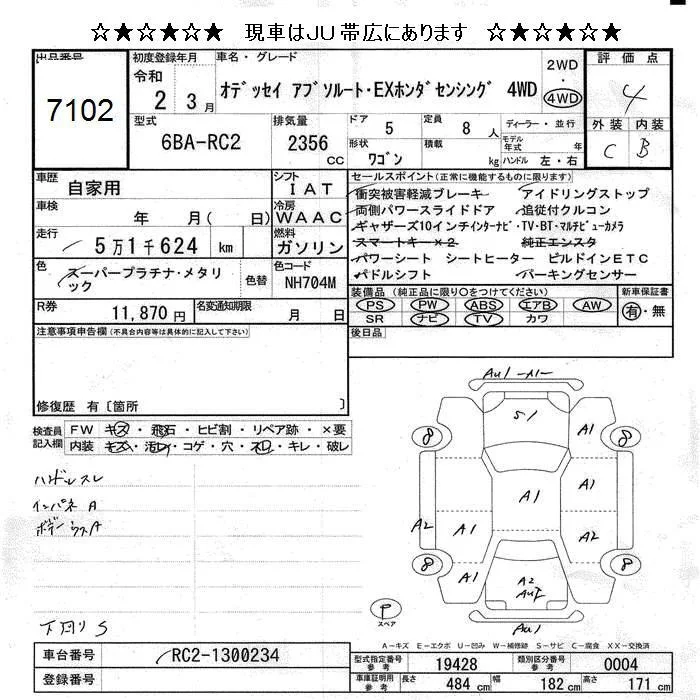 ☆★☆★☆★ 現車はJU帯広にあります ☆★☆★☆★
出品番号 7102
初度登録年月 令和 2 3月
車名・グレード オデッセイ アブソルート・EXホンダセンシング 4WD
2WD ・ 4WD
評価点 4
外装 C 内装 B
型式 6BA-RC2
排気量 2356 CC
ドア 5 定員 8 人
形状 ワゴン 積載 kg
ディーラー・並行
モデル年式 年
ハンドル 左・右
車歴 自家用
シフト IAT
車検 年 月( 日)
冷房 WAAC
走行 5万1千624 km
燃料 ガソリン
色 スーパープラチナ・メタリック
色替
色コード NH704M
R券 11,870 円
名変通知期限 月 日
セールスポイント(正常に機能するものに限ります)
衝突被害軽減ブレーキ アイドリングストップ
両側パワースライドドア 追従付クルコン
ギャザーズ10インチインターナビ・TV・BT・マルチビューカメラ
スマートキー×2 純正エンスタ
パワーシート シートヒーター ビルドインETC
パドルシフト パーキングセンサー
装備品(純正品に限り○をつけてください)
PS PW ABS エアB AW
SR ナビ TV カワ
新車保証書 有・無
後日品
注意事項申告欄(不具合内容等は具体的に記入して下さい)
修復歴 有〔箇所 〕
検査員記入欄
FW キズ・飛石・ヒビ割・リペア跡・×要
内装 キズ・汚れ・コゲ・穴・スレ・キレ・破レ
ハンドルスレ
インパネ A
下回り S
AU1 A1
S1
A1
8 8
A1
A1
A2
A1
A1
8 8
A1
A2
A1
AU1
P スペア
A-キズ E-エクボ U-凹み W-補修跡 S-サビ C-腐食 XX-交換済
車台番号 RC2-1300234
登録番号
型式指定番号 参考 19428 類別区分番号 参考 0004
車庫証明用 参考 長さ 484 cm 幅 182 cm 高さ 171 cm